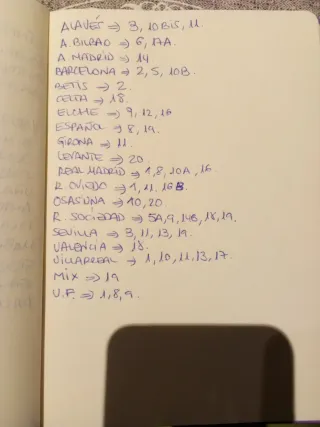 ALAVÉS => 3, 10BIS, 11.
A. BILBAO => 6, 17A.
A. MADRID => 14
BARCELONA => 2, 5, 10B.
BETIS => 2.
CELTA => 18.
ELCHE => 9, 12, 16
ESPAÑOL => 8, 19.
GIRONA => 11.
LEVANTE => 20.
REAL MADRID => 1, 8, 10A, 16.
R. OVIEDO => 1, 11, 16B.
OSASUNA => 10, 20
R. SOCIEDAD => 5A, 9, 14B, 18, 19.
SEVILLA => 3, 11, 13, 19.
VALENCIA => 18.
VILLARREAL => 1, 10, 11, 13, 17.
MIX => 19
U.F. => 1, 8, 9.